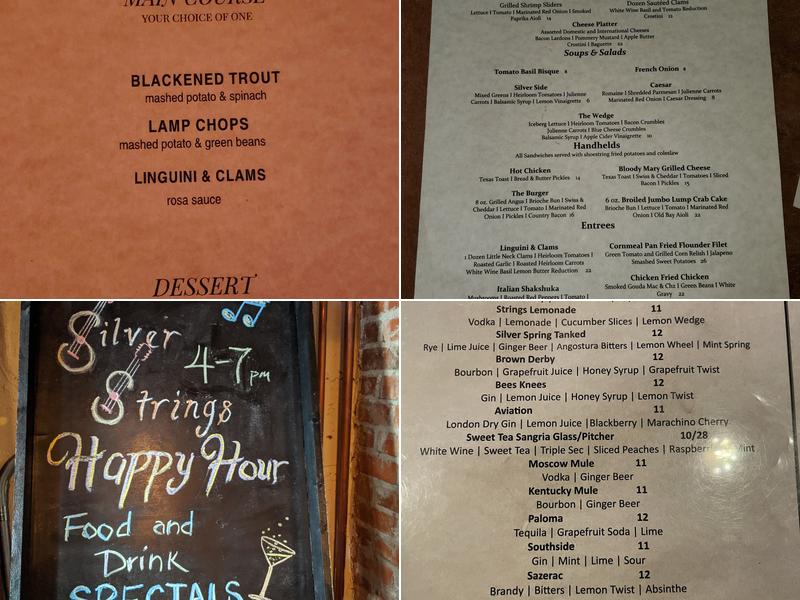 MAIN COURSE
YOUR CHOICE OF ONE
BLACKENED TROUT
mashed potato & spinach
LAMP CHOPS
mashed potato & green beans
LINGUINI & CLAMS
rosa sauce
DESSERT
Grilled Shrimp Sliders
Lettuce I Tomato I Marinated Red Onion I Smoked
Paprika Aioli 14
Dozen Sautéed Clams
White Wine Basil and Tomato Reduction
Crostini 12
Cheese Platter
Assorted Domestic and International Cheeses
Bacon Lardons I Pommery Mustard I Apple Butter
Crostini I Baguette 22
Soups & Salads
Tomato Basil Bisque 8
French Onion 8
Silver Side
Mixed Greens I Heirloom Tomatoes I Julienne
Carrots I Balsamic Syrup I Lemon Vinaigrette 6
Caesar
Romaine I Shredded Parmesan I Julienne Carrots
Marinated Red Onion I Caesar Dressing 8
The Wedge
Iceberg Lettuce I Heirloom Tomatoes I Bacon Crumbles
Julienne Carrots I Blue Cheese Crumbles
Balsamic Syrup I Apple Cider Vinaigrette 10
Handhelds
All Sandwiches served with shoestring fried potatoes and coleslaw
Hot Chicken
Texas Toast I Bread & Butter Pickles 14
Bloody Mary Grilled Cheese
Texas Toast I Swiss & Cheddar I Tomatoes I Sliced
Bacon I Pickles 15
The Burger
8 oz. Grilled Angus I Brioche Bun I Swiss &
Cheddar I Lettuce I Tomato I Marinated Red
Onion I Pickles I Country Bacon 16
6 oz. Broiled Jumbo Lump Crab Cake
Brioche Bun I Lettuce I Tomato I Marinated Red
Onion I Old Bay Aioli 22
Entrees
Linguini & Clams
1 Dozen Little Neck Clams I Heirloom Tomatoes I
Roasted Garlic I Roasted Heirloom Carrots
White Wine Basil Lemon Butter Reduction 22
Cornmeal Pan Fried Flounder Filet
Green Tomato and Grilled Corn Relish I Jalapeno
Smashed Sweet Potatoes 26
Italian Shakshuka
Mushrooms I Roasted Red Peppers I Tomato I
Chicken Fried Chicken
Smoked Gouda Mac & Chz I Green Beans I White
Gravy 22
Silver
4-7 pm
Strings
Happy Hour
Food and
Drink
SPECIALS
Strings Lemonade 11
Vodka | Lemonade | Cucumber Slices | Lemon Wedge
Silver Spring Tanked 12
Rye | Lime Juice | Ginger Beer | Angostura Bitters | Lemon Wheel | Mint Spring
Brown Derby 12
Bourbon | Grapefruit Juice | Honey Syrup | Grapefruit Twist
Bees Knees 12
Gin | Lemon Juice | Honey Syrup | Lemon Twist
Aviation 11
London Dry Gin | Lemon Juice |Blackberry | Marachino Cherry
Sweet Tea Sangria Glass/Pitcher 10/28
White Wine | Sweet Tea | Triple Sec | Sliced Peaches | Raspberries | Mint
Moscow Mule 11
Vodka | Ginger Beer
Kentucky Mule 11
Bourbon | Ginger Beer
Paloma 12
Tequila | Grapefruit Soda | Lime
Southside 11
Gin | Mint | Lime | Sour
Sazerac 12
Brandy | Bitters | Lemon Twist | Absinthe